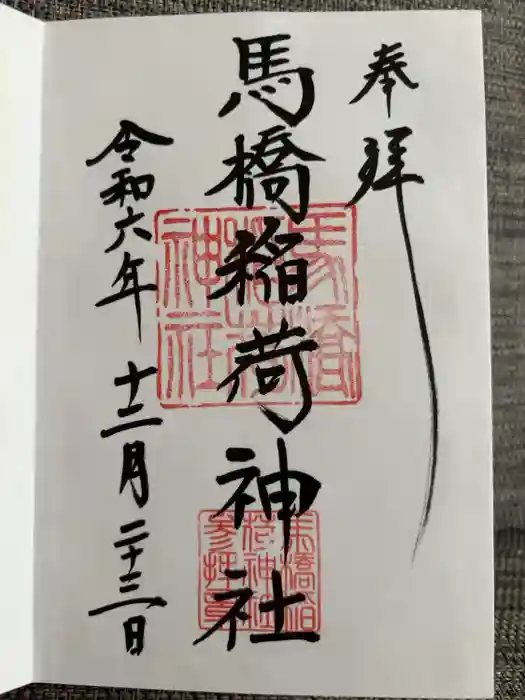 奉拝
馬橋稲荷神社
令和六年十二月二十三日
馬橋稲荷神社
馬橋稲荷神社参拝